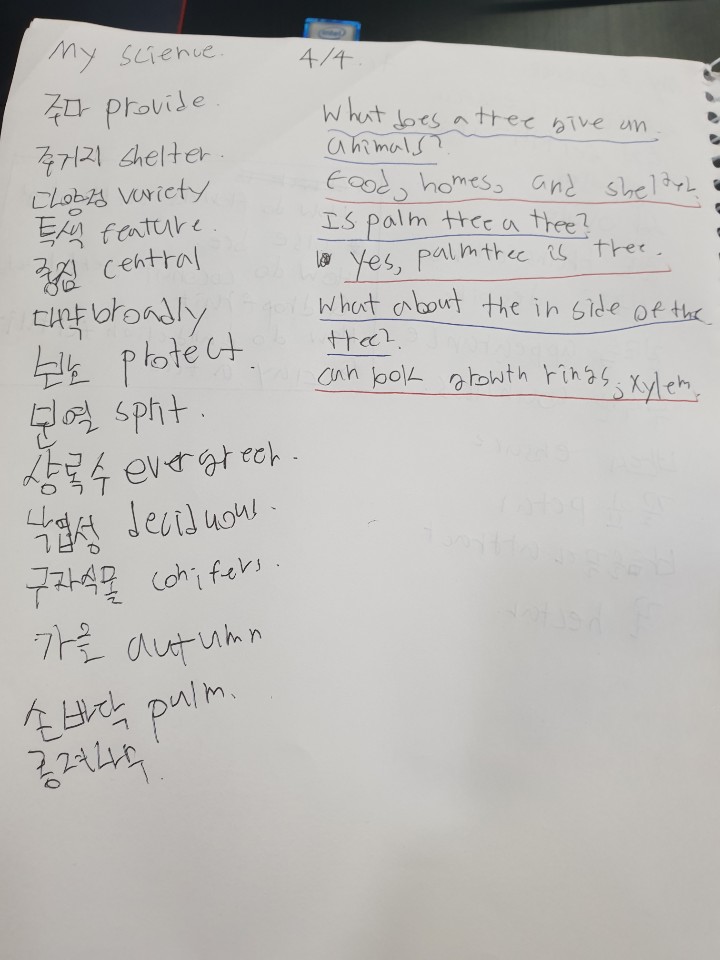 intel
My science. 4/4.
주다 provide.
주거지 shelter.
다양성 variety
특색 feature.
중심 central
대략 broadly
보호 protect.
분열 split.
상록수 evergreen.
낙엽성 deciduous.
구과식물 conifers.
가을 autumn
손바닥 palm.
종려나무.
What does a tree give an
animals?
Food, homes, and shelter.
Is palm tree a tree?
Yes, palmtree is tree.
What about the in side of the
tree?
can look growth rings, xylem.